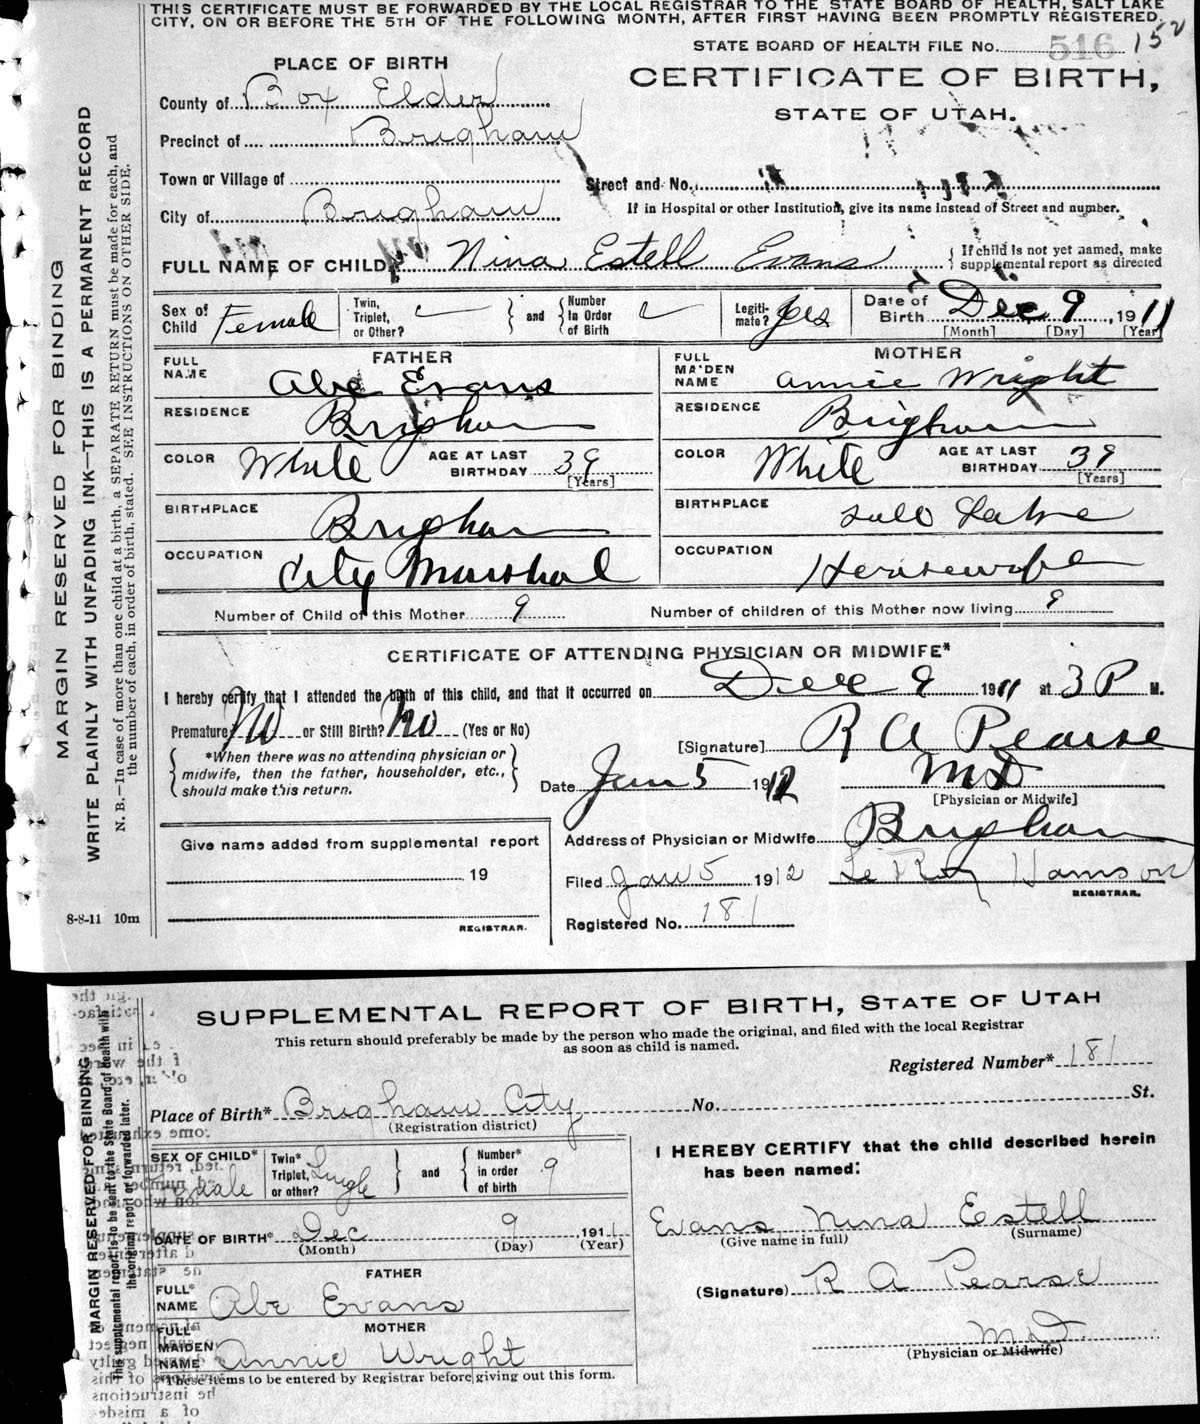 THIS CERTIFICATE MUST BE FORWARDED BY THE LOCAL REGISTRAR TO THE STATE BOARD OF HEALTH, SALT LAKE
CITY, ON OR BEFORE THE 5TH OF THE FOLLOWING MONTH, AFTER FIRST HAVING BEEN PROMPTLY REGISTERED.
STATE BOARD OF HEALTH FILE No. 516 152
PLACE OF BIRTH
CERTIFICATE OF BIRTH,
STATE OF UTAH.
County of Box Elder
Precinct of Brigham
Town or Village of
Street and No.
City of Brigham
If in Hospital or other Institution, give its name instead of Street and number.
FULL NAME OF CHILD Nina Estell Evans { If child is not yet named, make
supplemental report as directed
Sex of Child Female
Twin, Triplet, or Other?
and
Number In Order of Birth
Legitimate? yes
Date of Birth Dec 9, 1911
[Month] [Day] [Year]
FATHER
FULL NAME Abe Evans
RESIDENCE Brigham
COLOR White AGE AT LAST BIRTHDAY 39
[Years]
BIRTHPLACE Brigham
OCCUPATION City Marshal
MOTHER
FULL MAIDEN NAME Annie Wright
RESIDENCE Brigham
COLOR White AGE AT LAST BIRTHDAY 39
[Years]
BIRTHPLACE Salt Lake
OCCUPATION Housewife
Number of Child of this Mother 9 Number of children of this Mother now living 9
CERTIFICATE OF ATTENDING PHYSICIAN OR MIDWIFE*
I hereby certify that I attended the birth of this child, and that it occurred on Dec 9 1911 at 3 P M.
Premature? No or Still Birth? No (Yes or No)
*When there was no attending physician or
midwife, then the father, householder, etc.,
should make this return.
[Signature] R A Pearse
MD
[Physician or Midwife]
Date Jan 5 1912
Give name added from supplemental report
19
REGISTRAR.
Address of Physician or Midwife Brigham
Filed Jan 5 1912 Le Roy
REGISTRAR.
Registered No. 181
8-8-11 10m
MARGIN RESERVED FOR BINDING
WRITE PLAINLY WITH UNFADING INK—THIS IS A PERMANENT RECORD
N. B.—In case of more than one child at a birth, a SEPARATE RETURN must be made for each, and
the number of each, in order of birth, stated. SEE INSTRUCTIONS ON OTHER SIDE.
SUPPLEMENTAL REPORT OF BIRTH, STATE OF UTAH
This return should preferably be made by the person who made the original, and filed with the local Registrar
as soon as child is named.
Registered Number* 181
Place of Birth* Brigham City No. St.
(Registration district)
SEX OF CHILD* Female
Twin* Triplet, or other? Single
and
Number* in order of birth 9
DATE OF BIRTH* Dec 9 1911
(Month) (Day) (Year)
FATHER
FULL* NAME Abe Evans
MOTHER
FULL* MAIDEN NAME Annie Wright
*These items to be entered by Registrar before giving out this form.
I HEREBY CERTIFY that the child described herein
has been named:
Evans Nina Estell
(Give name in full) (Surname)
(Signature) R A Pearse
M.D.
(Physician or Midwife)
MARGIN RESERVED FOR BINDING
This supplemental report is to be sent to the State Board of Health with
the original report or forwarded later.